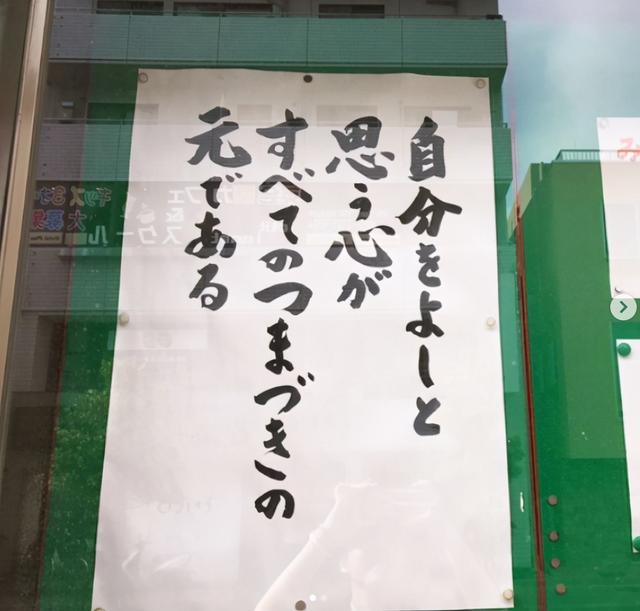 自分をよしと
思う心が
すべてのつまづきの
元である